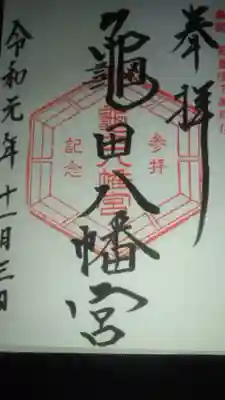 奉拝
龜田八幡宮
参拝
記念
令和元年十一月三日